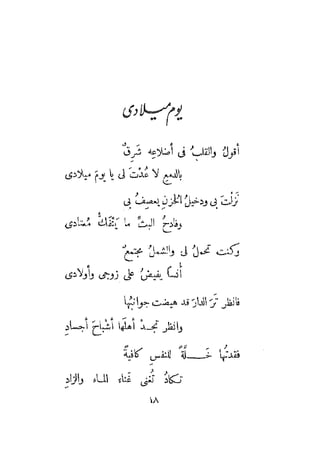 يوم ميلادى
أقولُ والقلبُ فى أضلاعِه شَرِقٌ
بالدمعِ لا عُدْتَ لى يا يومَ ميلادى
نَزلْتَ بى ودخيلُ الحزنِ يعصِفُ بى
وفادحُ البثِّ ما يَنْفَكُّ مُعتادى
وكنتَ تحملُ لى والشملُ مجتمعٌ
أُنسًا يفيضُ على زوجى وأولادى
فانظر تَرَ الدارَ قد هيضت جوانبُها
وانظر تجدْ أهلَها أشباحَ أجسادِ
فقدتُها خَلَّةً للنفسِ كافيةً
تكادُ تُغنى غَناءَ الماءِ والزادِ
١٨